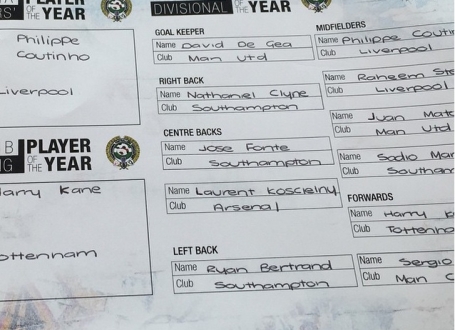 PLAYER
OF THE YEAR
Philippe
Coutinho
Liverpool
B PLAYER
OF THE YEAR
Harry Kane
ottenham
DIVISIONAL OF THE YEAR
GOAL KEEPER
Name David De Gea
Club Man Utd
RIGHT BACK
Name Nathaniel Clyne
Club Southampton
CENTRE BACKS
Name Jose Fonte
Club Southampton
Name Laurent Koscielny
Club Arsenal
LEFT BACK
Name Ryan Bertrand
Club Southampton
MIDFIELDERS
Name Philippe Coutin
Club Liverpool
Name Raheem Ste
Club Liverpool
Name Juan Mat
Club Man Utd
Name Sadio Man
Club Southam
FORWARDS
Name Harry K
Club Tottenha
Name Sergio
Club Man C